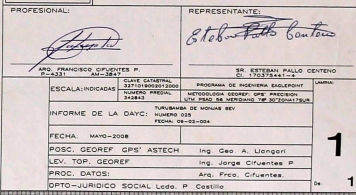 PROFESIONAL:
REPRESENTANTE:
Esteban Pallo Centeno
ARQ. FRANCISCO CIFUENTES P.
P-4331 AM-3847
SR. ESTEBAN PALLO CENTENO
CI. 170375441-4
ESCALA: INDICADAS
CLAVE CATASTRAL
3271019002012000
NUMERO PREDIAL
342843
PROGRAMA DE INGENIERIA EAGLEPOINT
METODOLOGIA GEOREF: GPS PRECISION
UTM PSAD 56 MERIDIANO 78º 30"ZONA17SUR
LAMINA:
INFORME DE LA DAYC:
TURUBAMBA DE MONJAS BEV
NUMERO 025
FECHA: 06-02-004
FECHA. MAYO-2008
1
POSC. GEOREF GPS' ASTECH Ing Geo A. Llangari
LEV. TOP. GEOREF. Ing. Jorge Cifuentes P
PROC. DATOS: Arq. Frco. Cifuentes.
DPTO-JURIDICO SOCIAL Lcdo. P Castillo
De: 1